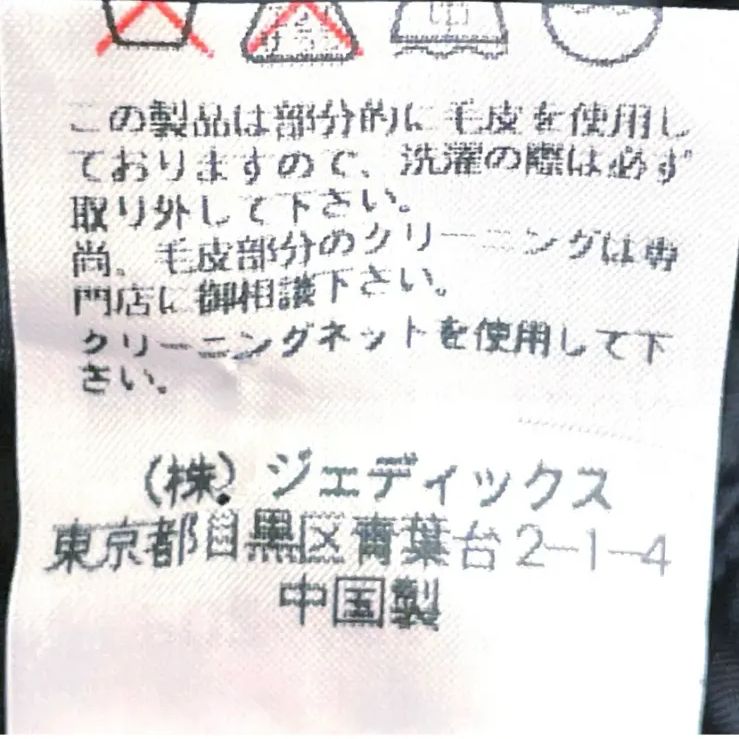 この製品は部分的に毛皮を使用し
ておりますので、洗濯の際は必ず
取り外して下さい。
尚、毛皮部分のクリーニングは専
門店に御相談下さい。
クリーニングネットを使用して下
さい。
(株)ジェディックス
東京都目黒区青葉台2-1-4
中国製